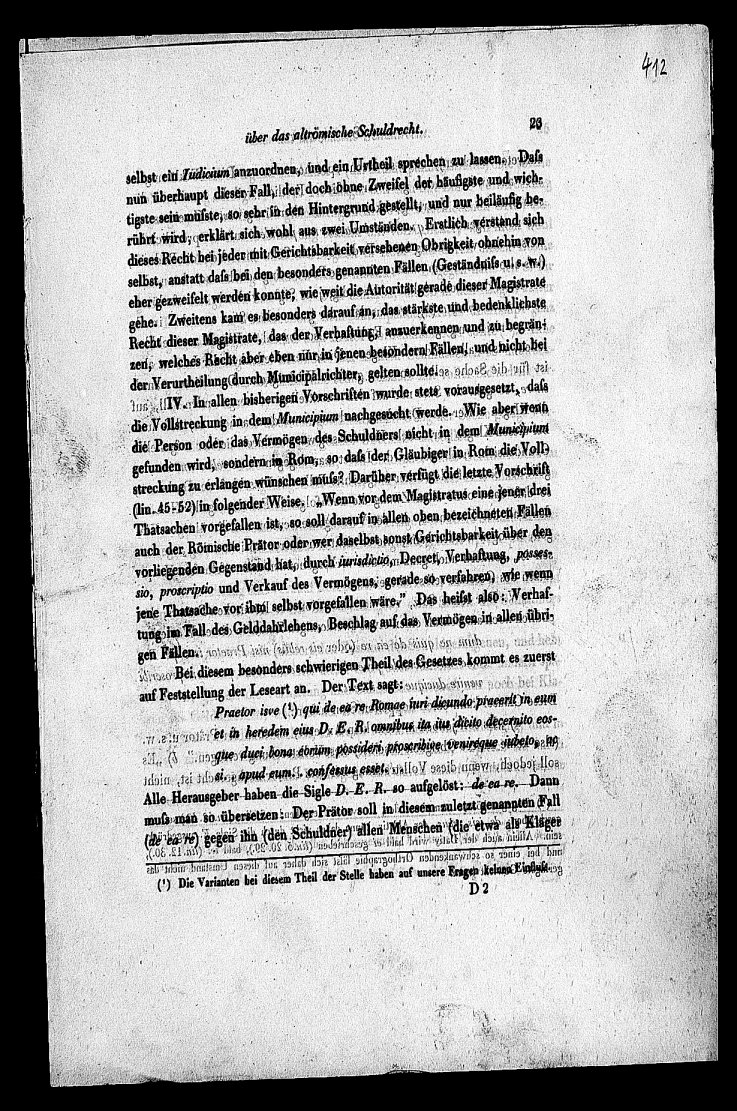 412
über das altrömische Schuldrecht. 23
selbst ein Iudicium anzuordnen, und ein Urtheil sprechen zu lassen. Daſs
nun überhaupt dieser Fall, der doch ohne Zweifel der häufigste und wich-
tigste sein müſste, so sehr in den Hintergrund gestellt, und nur beiläufig be-
rührt wird, erklärt sich wohl aus zwei Umständen. Erstlich verstand sich
dieses Recht bei jeder mit Gerichtsbarkeit versehenen Obrigkeit ohnehin von
selbst, anstatt daſs bei den besonders genannten Fällen (Geständniſs u. s. w.)
eher gezweifelt werden konnte, wie weit die Autorität gerade dieser Magistrate
gehe. Zweitens kam es besonders darauf an, das stärkste und bedenklichste
Recht dieser Magistrate, das der Verhaftung, anzuerkennen und zu begrün-
zen, welches Recht aber eben nur in jenen besondern Fällen, und nicht bei
der Verurtheilung durch Municipalrichter, gelten sollte.
IV. In allen bisherigen Vorschriften wurde stets vorausgesetzt, daſs
die Vollstreckung in dem Municipium nachgesucht werde. Wie aber wenn
die Person oder das Vermögen des Schuldners nicht in dem Municipium
gefunden wird, sondern in Rom, so daſs der Gläubiger in Rom die Voll-
streckung zu erlangen wünschen muſs? Darüber verfügt die letzte Vorschrift
(lin. 45-52) in folgender Weise. „Wenn vor dem Magistratus eine jener drei
Thatsachen vorgefallen ist, so soll darauf in allen oben bezeichneten Fällen
auch der Römische Prätor oder wer daselbst sonst Gerichtsbarkeit über den
vorliegenden Gegenstand hat, durch iurisdictio, Decret, Verhaftung, posses-
sio, proscriptio und Verkauf des Vermögens, gerade so verfahren, wie wenn
jene Thatsache vor ihm selbst vorgefallen wäre.” Das heiſst also: Verhaf-
tung im Fall des Gelddahrlehens, Beschlag auf das Vermögen in allen übri-
gen Fällen.
Bei diesem besonders schwierigen Theil des Gesetzes kommt es zuerst
auf Feststellung der Leseart an. Der Text sagt:
Praetor isve (¹) qui de ea re Romae iuri dicundo praeerit in eum
et in heredem eius D. E. R. omnibus ita ius dicito decernito eos-
que duci bona eorum possideri proscribive venireque iubeto, ac
si . . apud eum . . confessus esset.
Alle Herausgeber haben die Sigle D. E. R. so aufgelöst: de ea re. Dann
muſs man so übersetzen: Der Prätor soll in diesem zuletzt genannten Fall
(de ea re) gegen ihn (den Schuldner) allen Menschen (die etwa als Kläger
(¹) Die Varianten bei diesem Theil der Stelle haben auf unsere Fragen keinen Einfluſs.
D 2